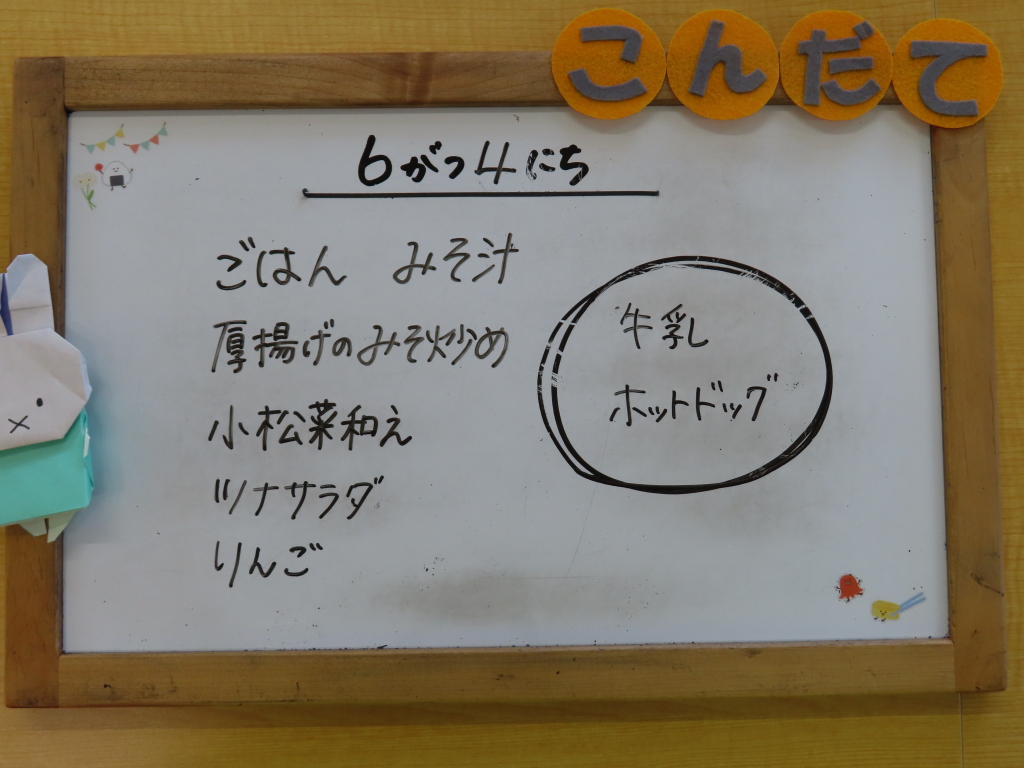 こんだて
6がつ4にち
ごはん　みそ汁
厚揚げのみそ炒め
小松菜和え
ツナサラダ
りんご
牛乳
ホットドッグ